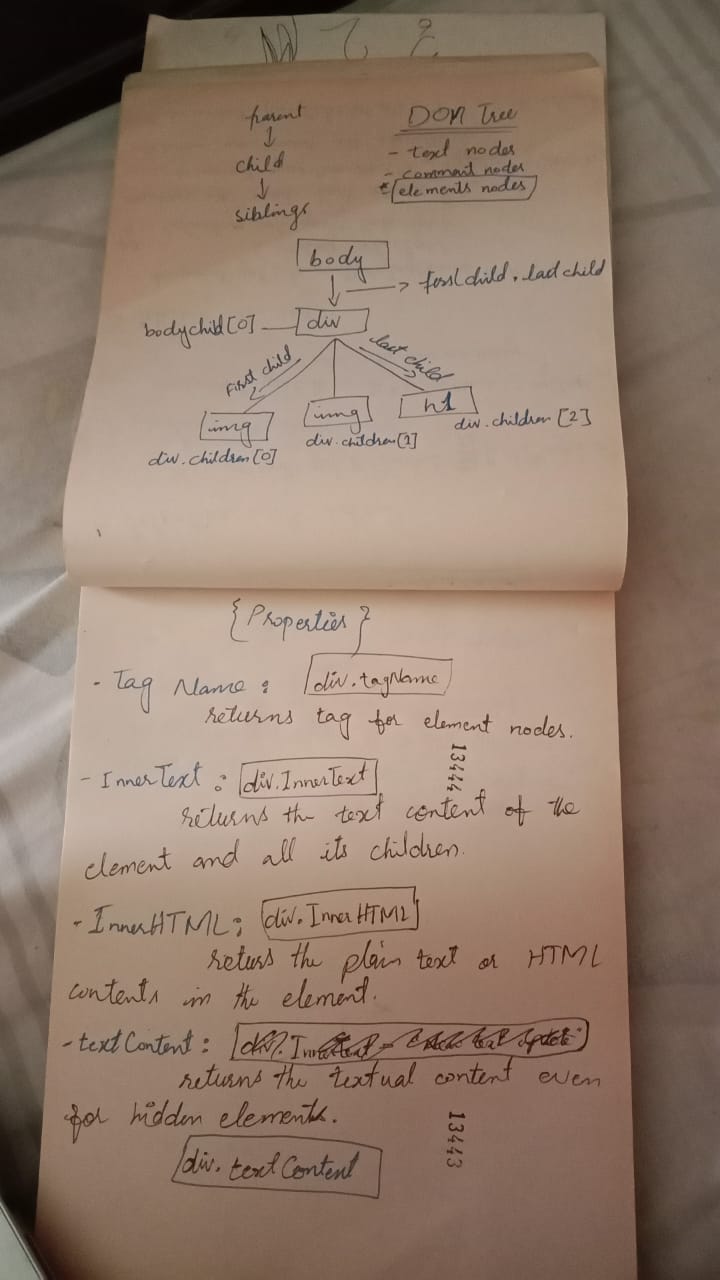 parent
↓
child
↓
siblings
DOM Tree
- text nodes
- comment nodes
* elements nodes
body
→ first child, last child
bodychild[0]
div
First child
last child
img
img
h1
div.children[0]
div.children[1]
div.children [2]
{Properties}
- Tag Name: div.tagName
returns tag for element nodes.
- InnerText: div.InnerText
returns the text content of the
element and all its children.
13444
- InnerHTML: div.InnerHTML
returs the plain text or HTML
contents in the element.
- textContent:
returns the textual content even
for hidden elements.
div.textContent
13443